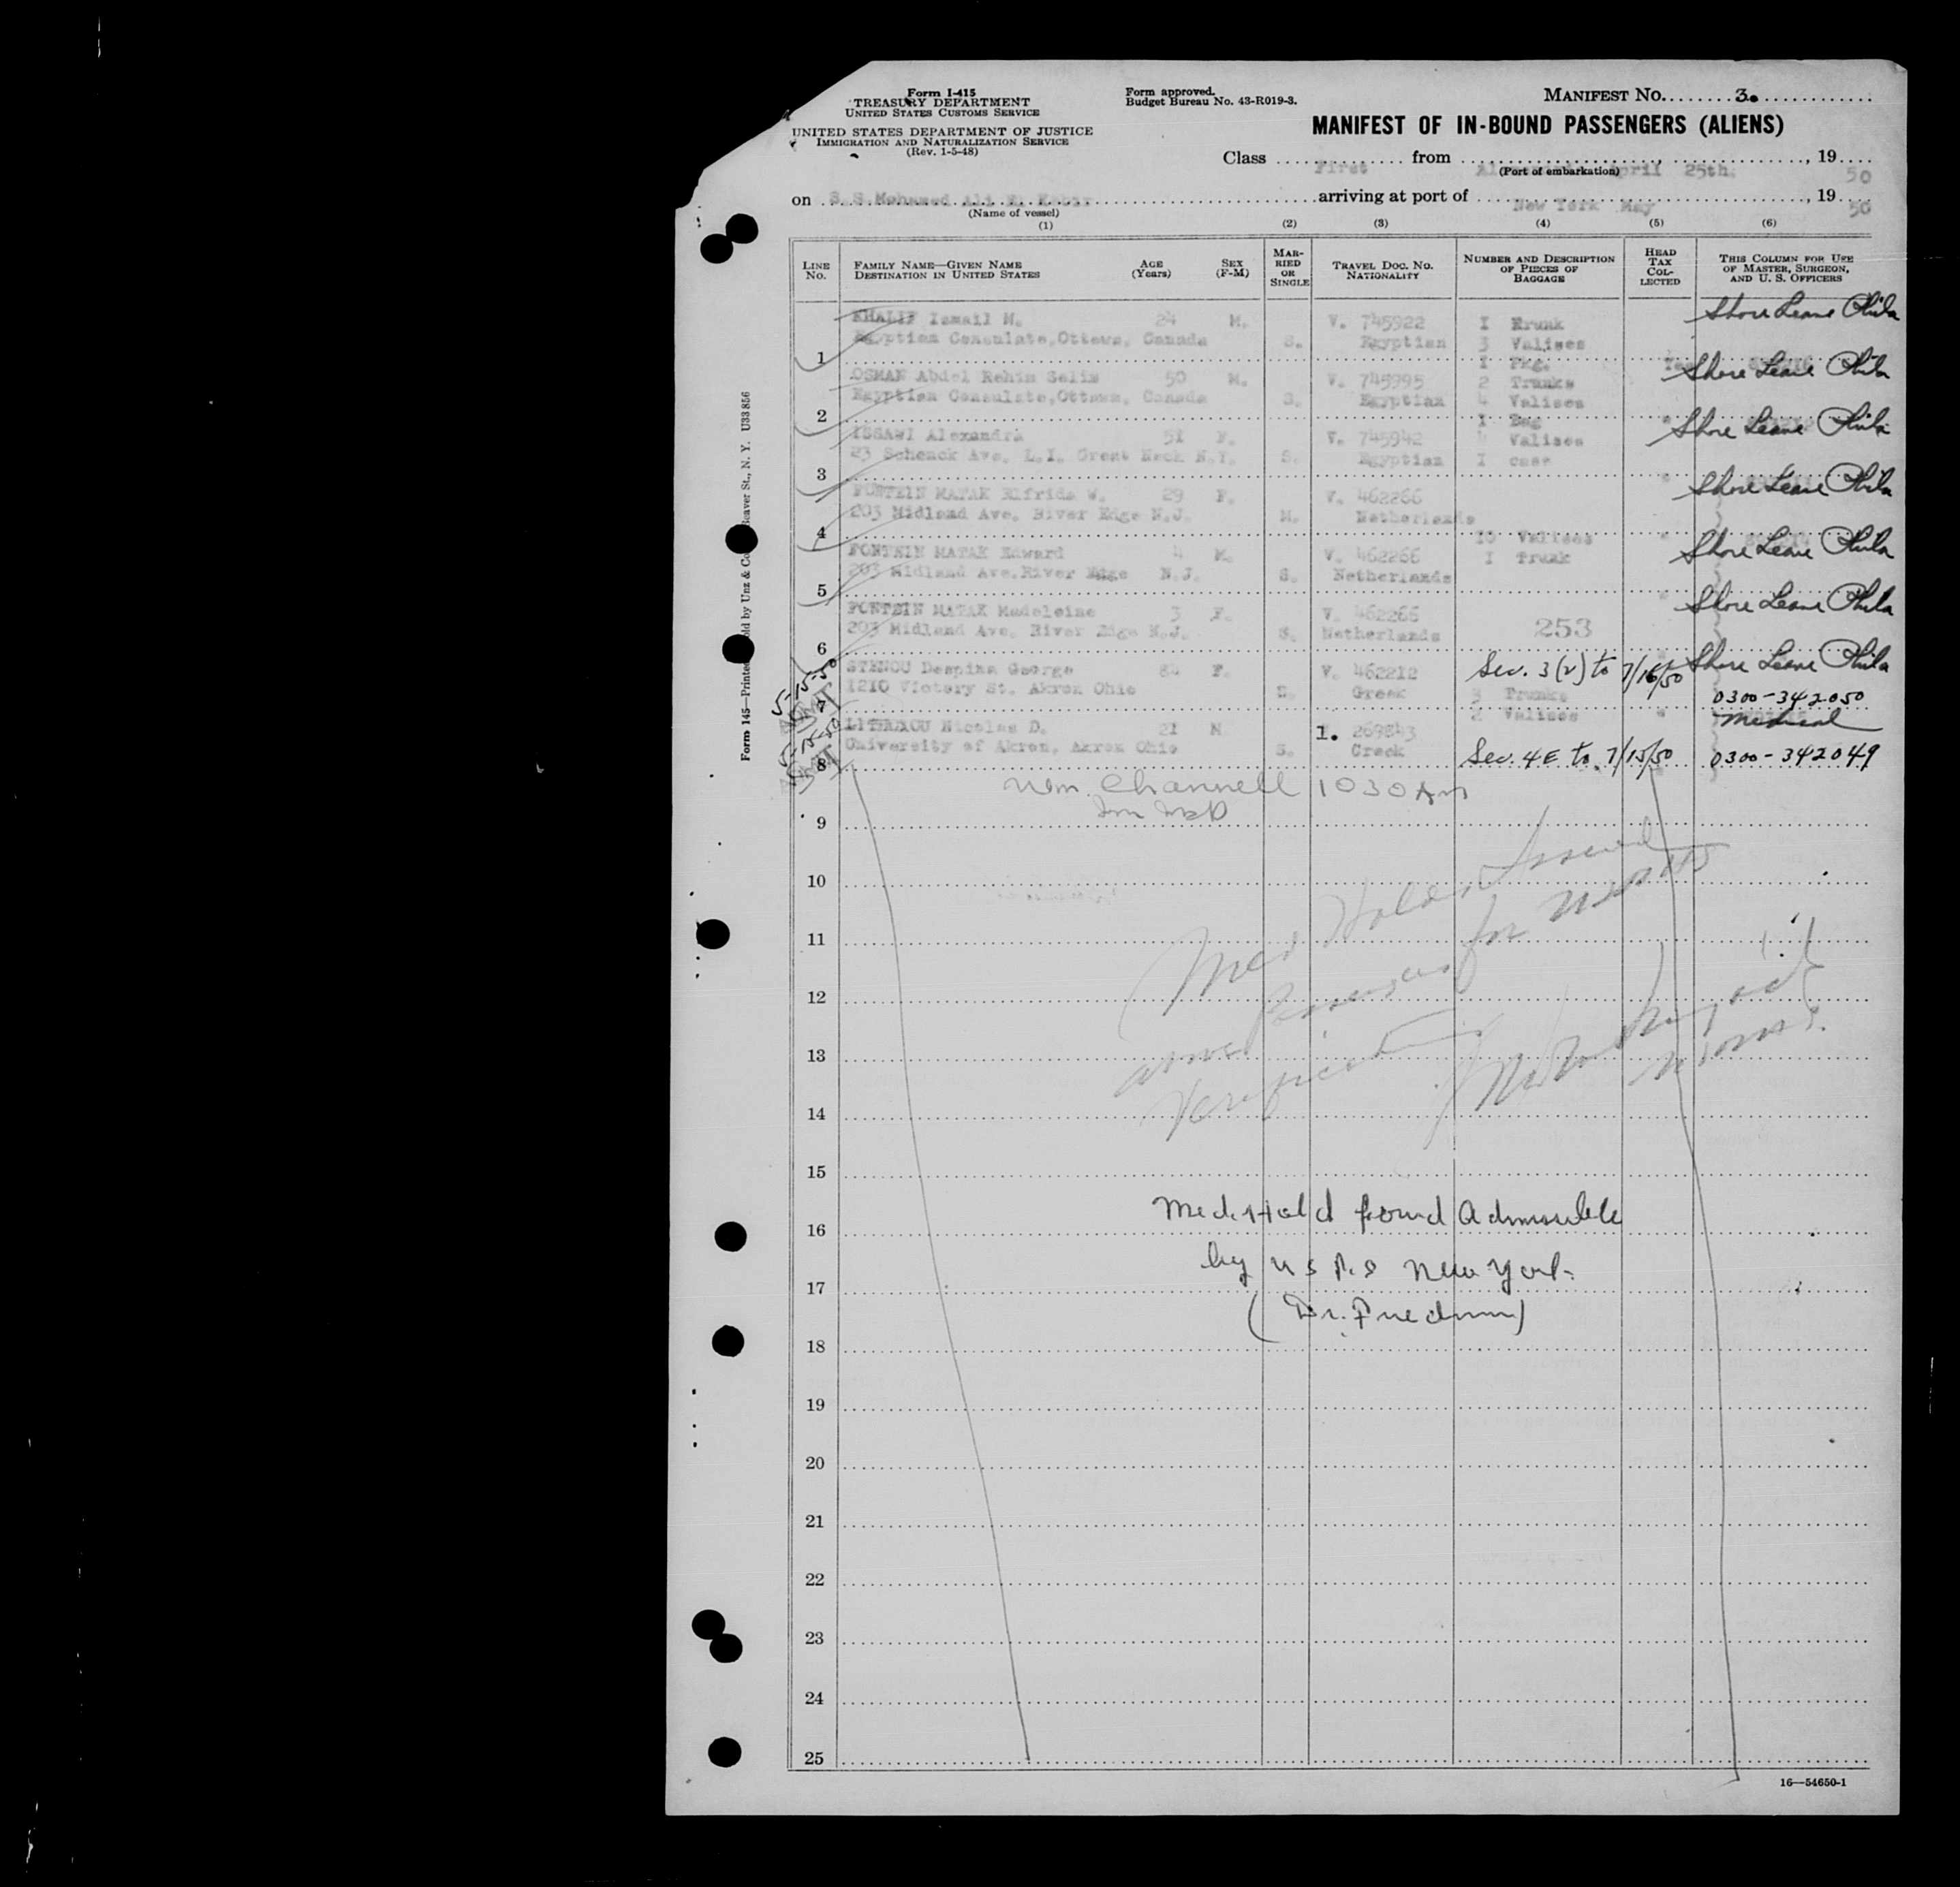 Form I-415
TREASURY DEPARTMENT
UNITED STATES CUSTOMS SERVICE
UNITED STATES DEPARTMENT OF JUSTICE
IMMIGRATION AND NATURALIZATION SERVICE
(Rev. 1-5-48)
Form approved.
Budget Bureau No. 43-R019-3.
MANIFEST No. 3.
MANIFEST OF IN-BOUND PASSENGERS (ALIENS)
Class First from April 25th. , 19 50
(Port of embarkation)
on S.S. Mohamed Ali El Kebir arriving at port of New York May , 19 50
(Name of vessel)
(1) (2) (3) (4) (5) (6)
LINE No. FAMILY NAME—GIVEN NAME DESTINATION IN UNITED STATES AGE (Years) SEX (F-M) MARRIED OR SINGLE TRAVEL DOC. NO. NATIONALITY NUMBER AND DESCRIPTION OF PIECES OF BAGGAGE HEAD TAX COLLECTED THIS COLUMN FOR USE OF MASTER, SURGEON, AND U. S. OFFICERS
KHALIF Ismail M. 24 M. V. 745922 I Trunk Shore Leave Phila
1 Egyptian Consulate,Ottawa, Canada S. Egyptian 3 Valises
I Pkg.
OSMAN Abdel Rehim Selim 50 M. V. 745995 2 Trunks Shore Leave Phila
2 Egyptian Consulate,Ottawa, Canada S. Egyptian 4 Valises
I Bag
ISSAWI Alexandra 51 F. V. 745942 4 Valises Shore Leave Phila
3 23 Schenck Ave. L.I. Great Neck N.Y. S. Egyptian I case
FONTEIN MATAK Elfrida W. 29 F. V. 462266 Shore Leave Phila
4 203 Midland Ave. River Edge N.J. M. Netherlands
10 Valises
FONTEIN MATAK Edward 4 M. V. 462266 I Trunk Shore Leave Phila
5 203 Midland Ave.River Edge N.J. S. Netherlands
FONTEIN MATAK Madeleine 3 F. V. 462265 Shore Leave Phila
6 203 Midland Ave. River Edge N.J. S. Netherlands 253
5-15-50 STENOU Despina George 64 F. V. 462212 Sec. 3(2) to 7/16/50 Shore Leave Phila
7 1210 Victory St. Akron Ohio S. Greek 3 Trunks 0300-342050
2 Valises Medical
5-15-50 Nicolas D. 21 M 1. 269843
8 University of Akron, Akron Ohio S. Greek Sec. 4E to 7/15/50 0300-342049
Channell 1030 AM
9
10
Med Holds Issued
11
for
12
13
Verification
14
15
Med. Hold found Admissible
16
by U S P.S New York.
17
(Dr. Friedman)
18
19
20
21
22
23
24
25
16—54650-1